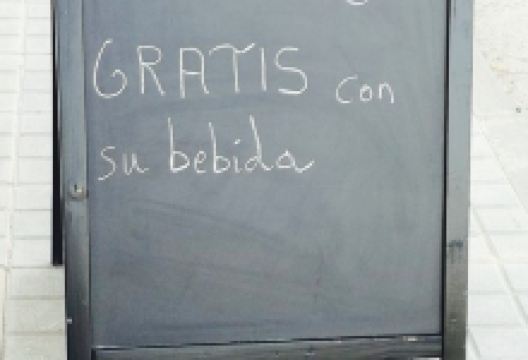 GRATIS con
su bebida